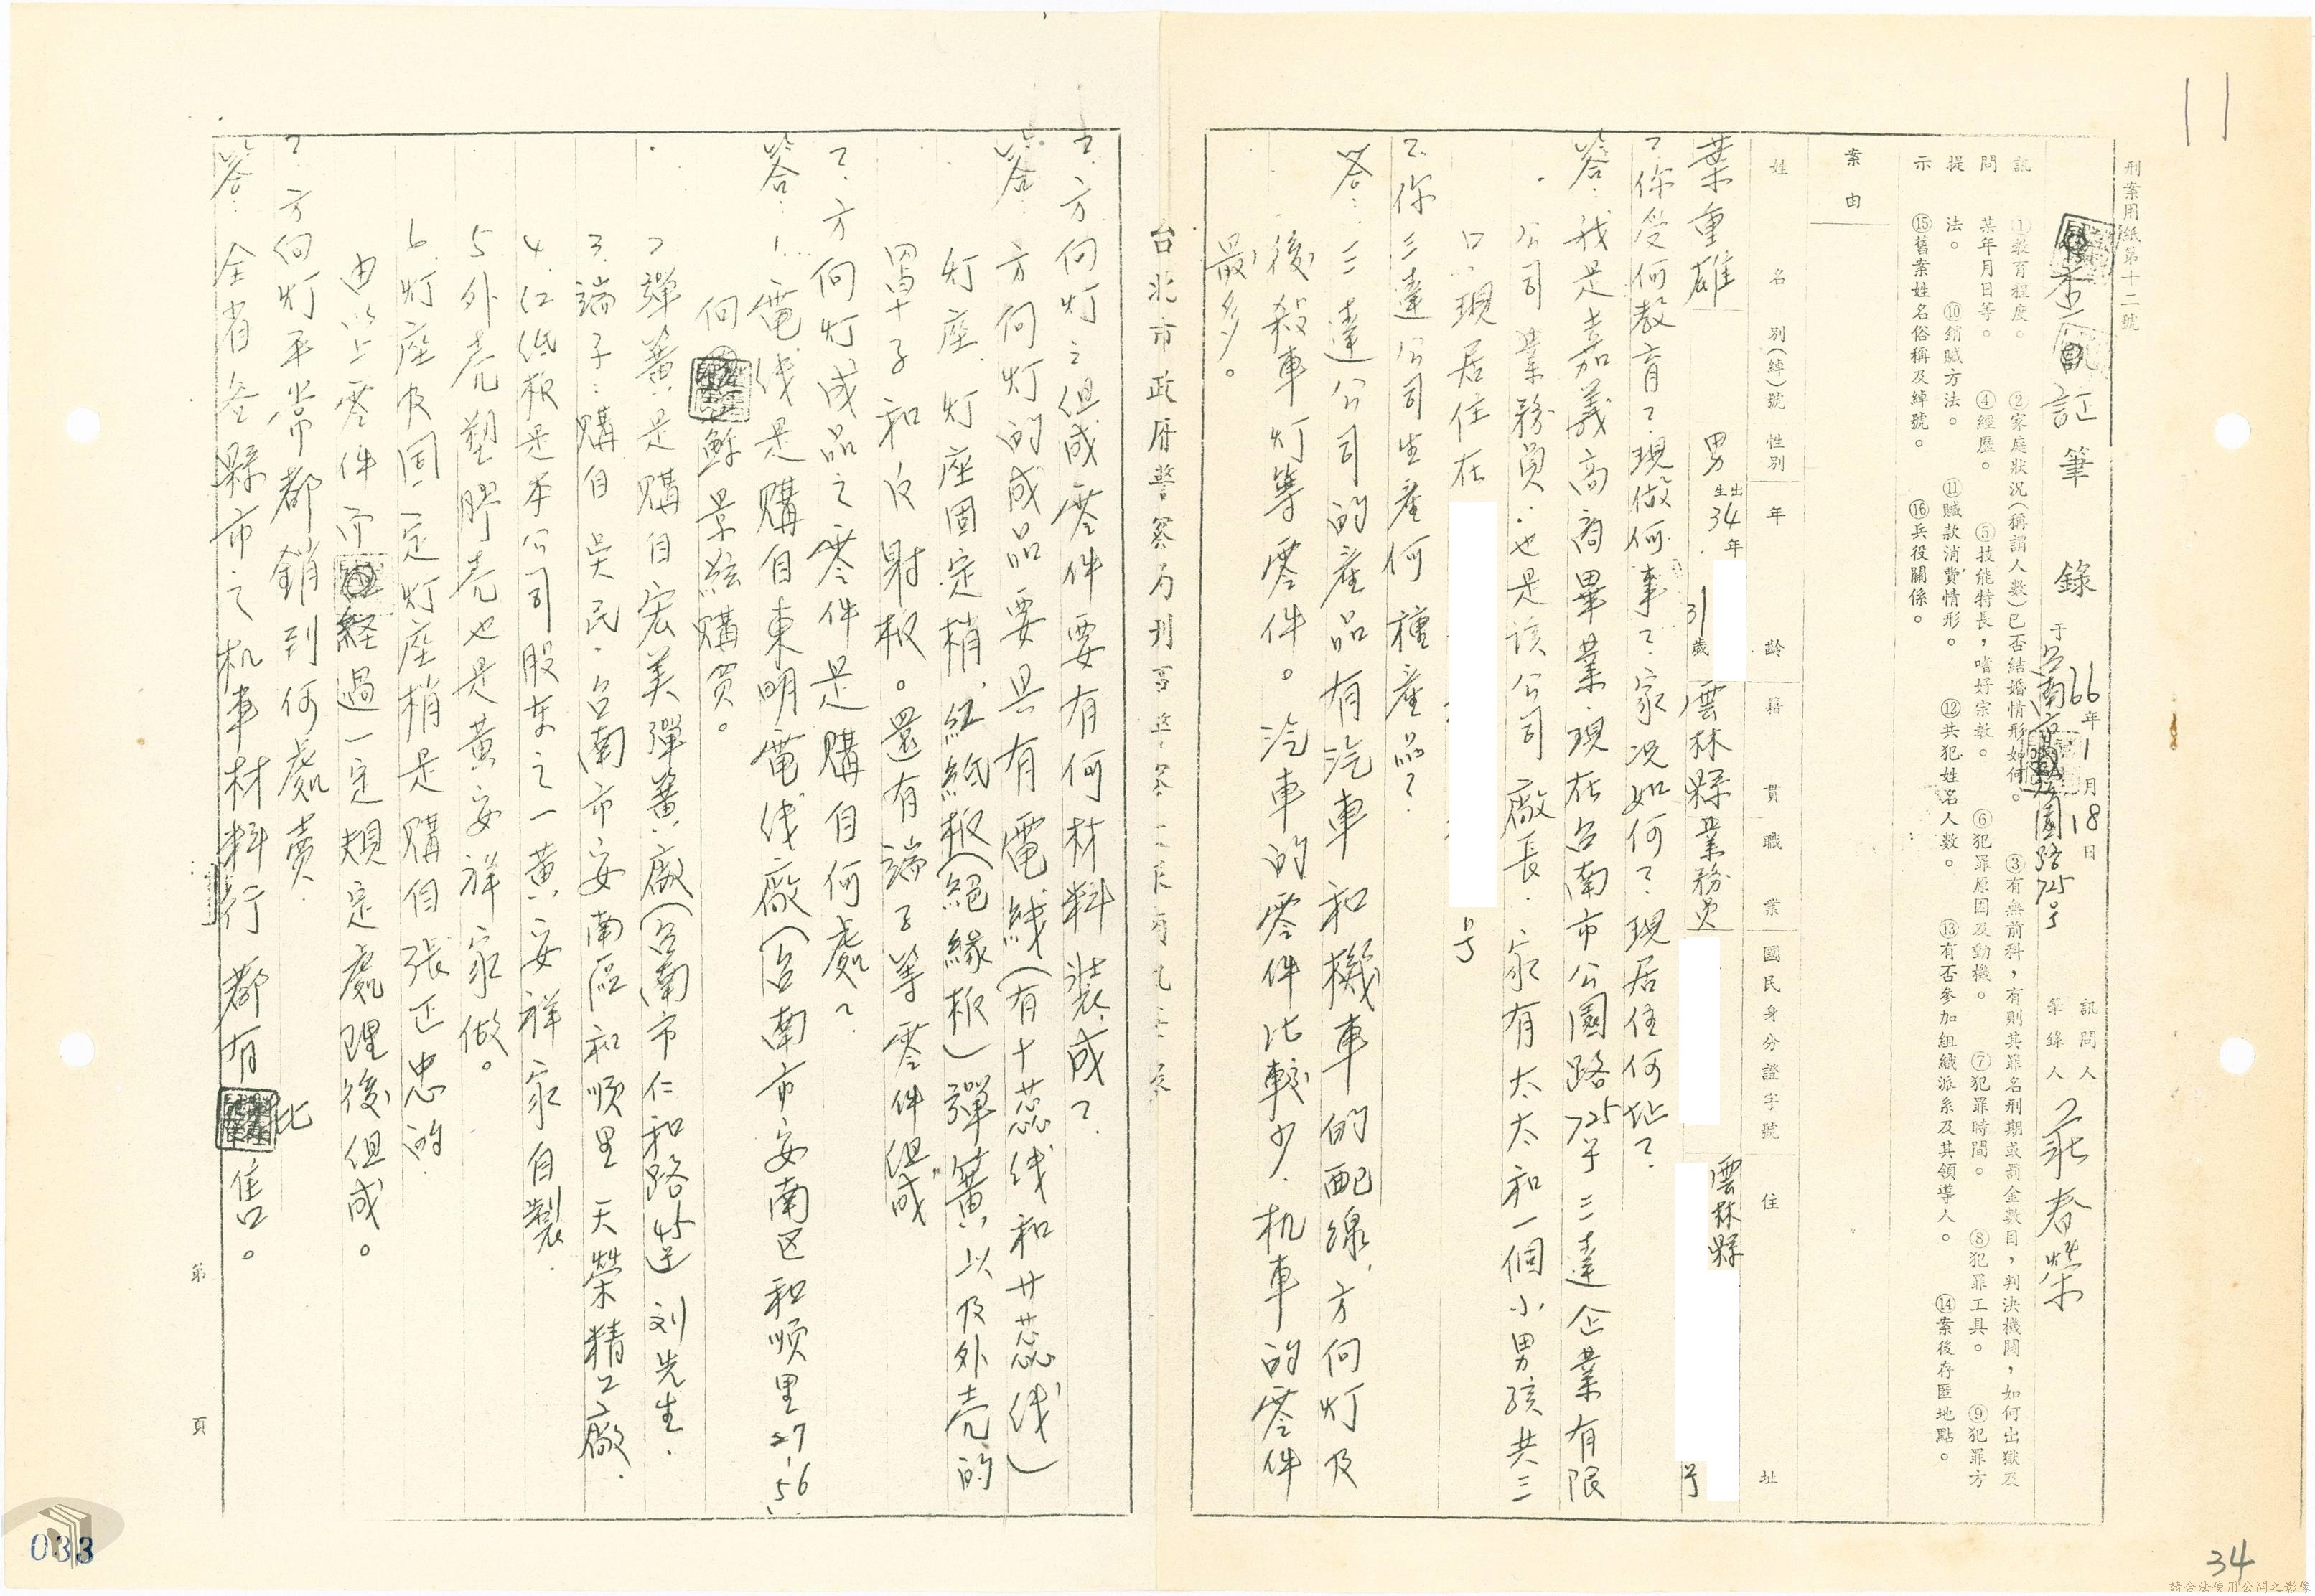 刑案用紙第十二號
查訪筆錄 于 66年1月18日 台南市公園路725号 訊問人 筆錄人 莊春榮
訊問提示 ①教育程度。 ②家庭狀況(稱謂人數)已否結婚情形如何。 ③有無前科,有則其罪名刑期或罰金數目,判決機關,如何出獄及
某年月日等。 ④經歷。 ⑤技能特長,嗜好宗教。 ⑥犯罪原因及動機。 ⑦犯罪時間。 ⑧犯罪工具。 ⑨犯罪方
法。 ⑩銷贓方法。 ⑪贓款消費情形。 ⑫共犯姓名人數。 ⑬有否參加組織派系及其領導人。 ⑭案後存匿地點。
⑮舊案姓名俗稱及綽號。 ⑯兵役關係。
案由
姓名 別(綽)號 性別 年齡 籍貫 職業 國民身分證字號 住址
葉重雄 男 出生34年 31歲 雲林縣 業務員 雲林縣 号
?你受何教育?現做何事?家況如何?現居住何址?
答:我是嘉義高商畢業.現在台南市公園路725号三達企業有限
公司業務員.也是該公司廠長.家有太太和一個小男孩共三
口.現居住在 号
?你三達公司生產何種產品?
答:三達公司的產品有汽車和機車的配線.方向灯及
後殺車灯等零件。汽車的零件比較少.机車的零件
最多。
台北市政府警察局刑
?.方向灯之組成零件要有何材料裝成?
答:方向灯的成品要具有電綫(有十蕊线和廿蕊线)
灯座.灯座固定梢.紅紙板(絕緣板)彈簧以及外壳的
罩子和反射板。還有端子等零件組成
?.方向灯成品之零件是購自何處?
答:1.電线是購自東明電线廠(台南市安南区和順里27-56
向蘇景絃購買。
2彈簧是購自宏美彈簧廠(台南市仁和路45号 刘先生.
3.端子:購自吳民.台南市安南區和順里天榮精工廠.
4.红紙板是本公司股东之一黃安祥家自製.
5外壳塑膠壳也是黃安祥家做。
6.灯座及固定灯座梢是購自張正忠的.
由以上零件 經過一定規定處理後組成。
?.方向灯平常都銷到何處賣.
答:全省各縣市之机車材料行都有出售。
第 頁
033
34
請合法使用公開之影像